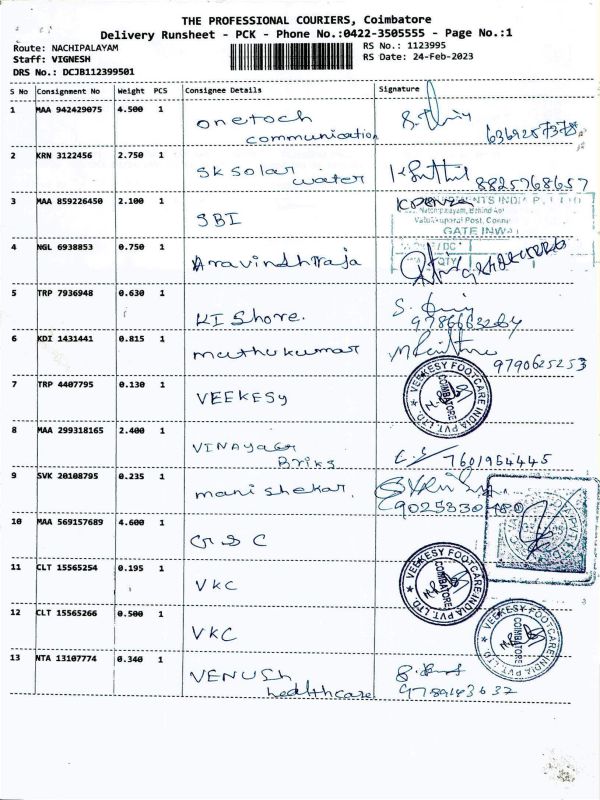 THE PROFESSIONAL COURIERS, Coimbatore
Delivery Runsheet - PCK - Phone No.:0422-3505555 - Page No.:1
Route: NACHIPALAYAM
RS No.: 1123995
Staff: VIGNESH
RS Date: 24-Feb-2023
DRS No.: DCJB112399501
S No Consignment No Weight PCS Consignee Details Signature
1 MAA 942429075 4.500 1 onetoch
communication
2 KRN 3122456 2.750 1 SK Solar
water
8825768657
3 MAA 859226450 2.100 1 SBI
GATE INWA
4 NGL 6938853 0.750 1 Aravindhraja
5 TRP 7936948 0.630 1 KIShore.
6 KDI 1431441 0.815 1 muthukumar
9790625253
7 TRP 4407795 0.130 1 VEEKESY
VEEKESY FOOTCARE INDIA PVT. LTD.
COIMBATORE
8 MAA 299318165 2.400 1 VINAYAGA
Briks
7601964445
9 SVK 20108795 0.235 1 manishekar.
10 MAA 569157689 4.600 1 GSC
11 CLT 15565254 0.195 1 VKC
VEEKESY FOOTCARE INDIA PVT. LTD.
COIMBATORE
12 CLT 15565266 0.500 1 VKC
VEEKESY FOOTCARE INDIA PVT. LTD.
COIMBATORE
13 NTA 13107774 0.340 1 VENUSh
healthcare